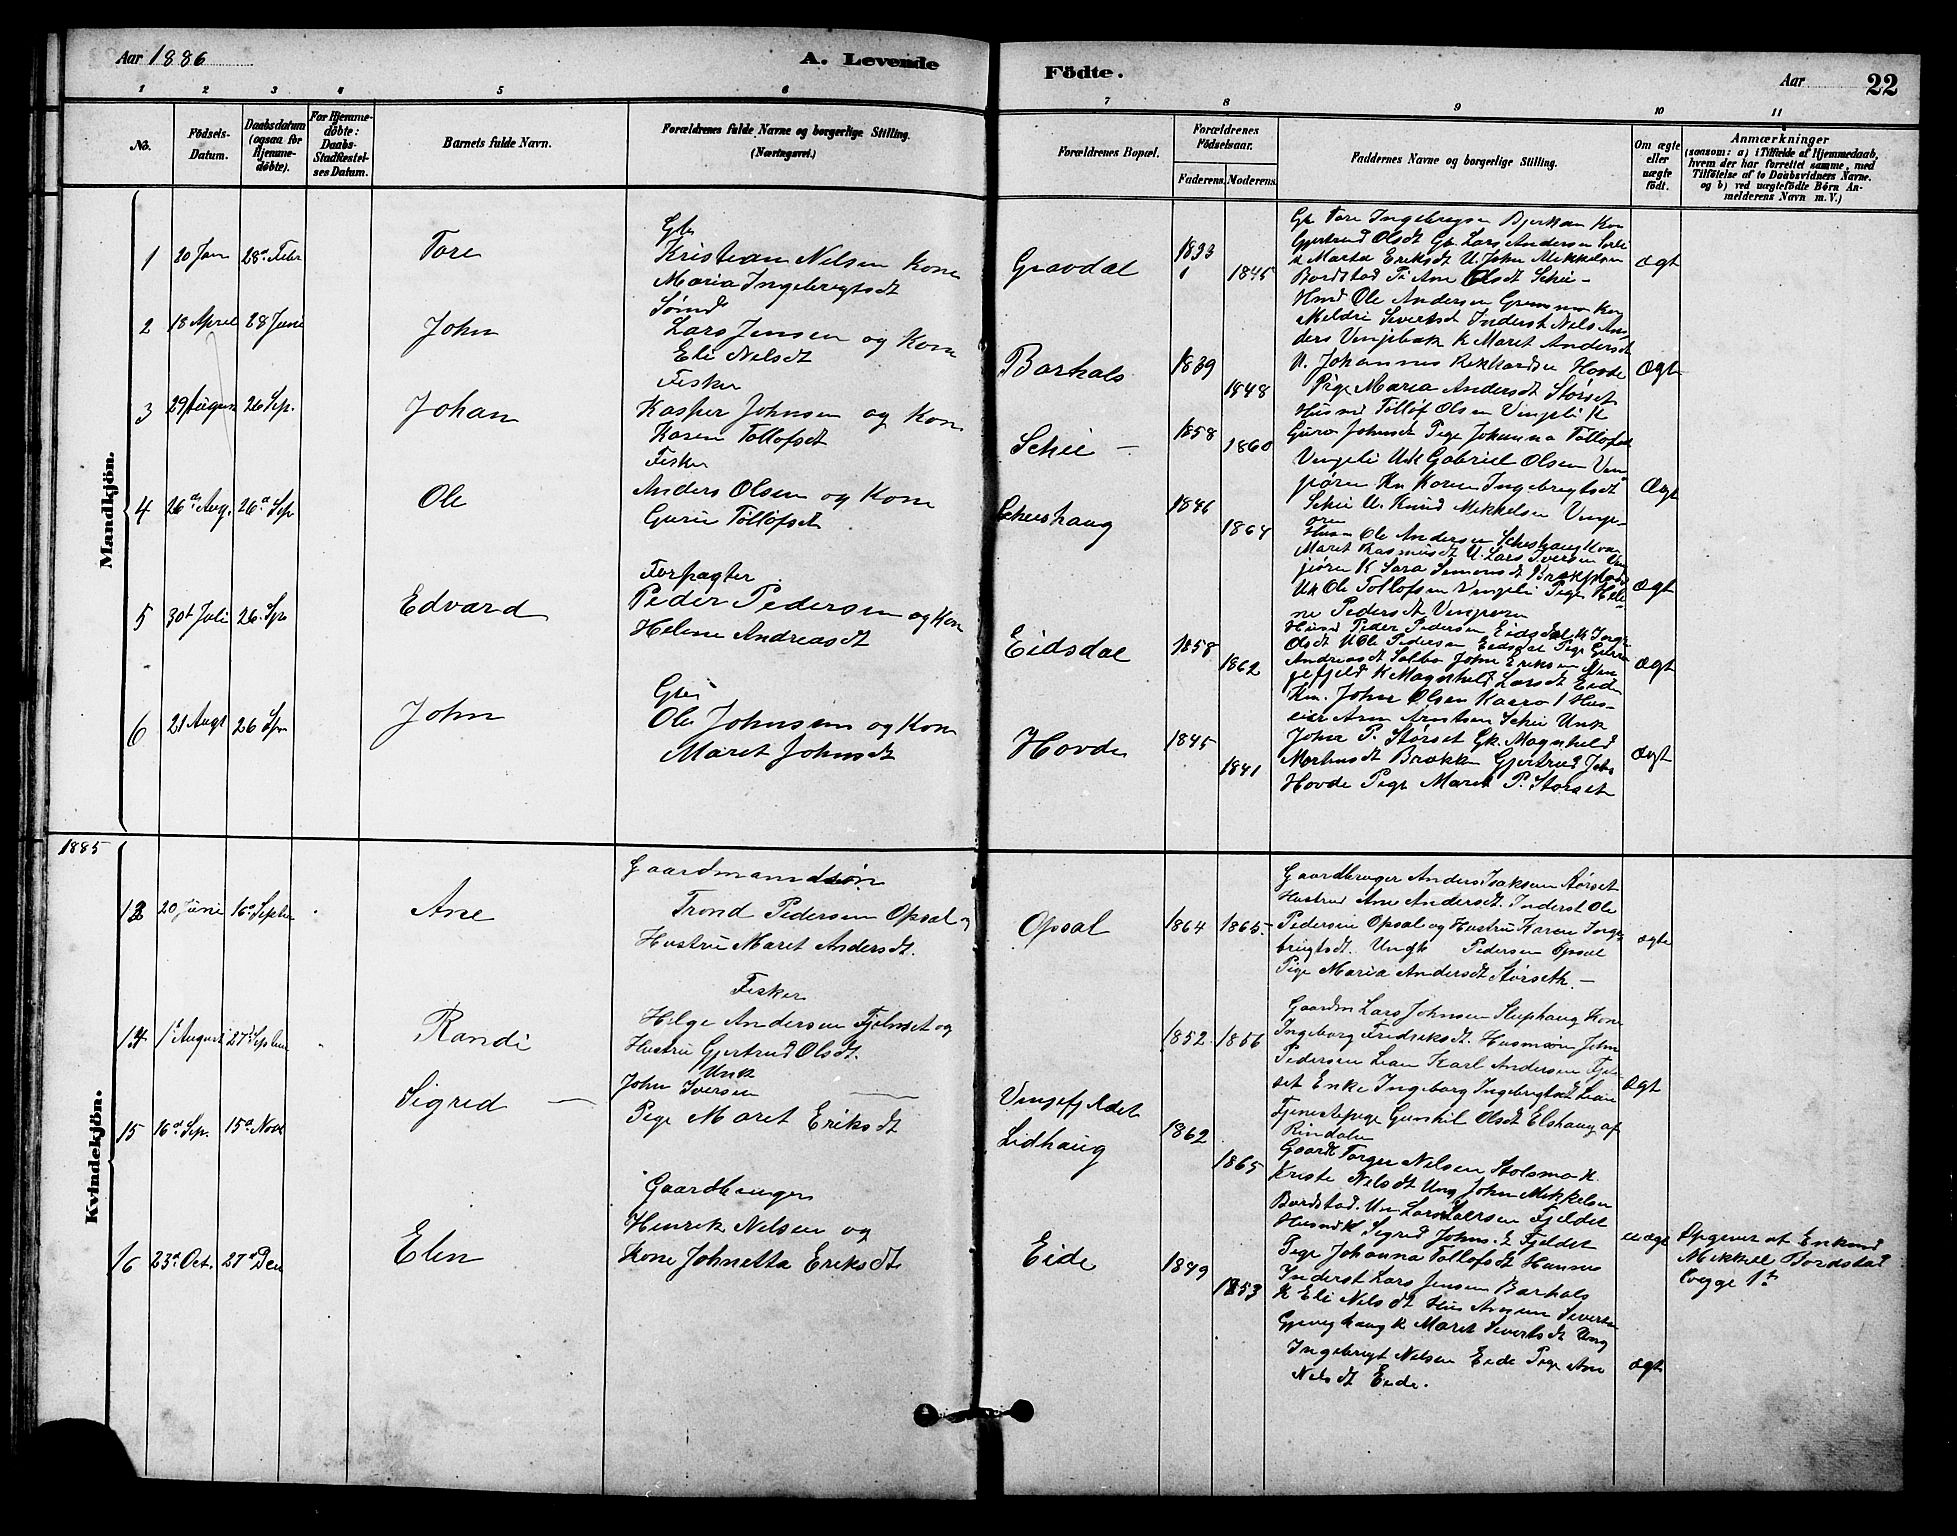 Aar 1886
A. Levende
Födte.
Aar
22
1 2 3 4 5 6 7 8 9 10 11
No.
Födsels-
Datum.
Daabsdatum
(ogsaa for
Hjemme-
döbte).
For Hjemme-
döbte:
Daabs-
Stadfæstel-
ses Datum.
Barnets fulde Navn.
Forældrenes fulde Navne og borgerlige Stilling.
(Næringsvei.)
Forældrenes Bopæl.
Forældrenes
Födselsaar.
Faderens.
Moderens.
Faddernes Navne og borgerlige Stilling.
Om ægte
eller
uægte
födt.
Anmærkninger
(saasom: a) i Tilfælde af Hjemmedaab,
hvem der har forrettet samme, med
Tilföielse af to Daabsvidners Navne.
og b) ved uægtefödte Börn An-
melderens Navn m. V.)
Mandkjön.
1 20 Jan 28de Febr Tore
Gbr
Kristian Nilsen Kone
Maria Ingebregtsdt
Gravdal 1833 1845
Gb Tore Ingebregtsen Bjerkan Kon
Gjertrud Olsdt Gb Lars Andersen
k Marta Eriksdt U. John Mikkelsen
Bordstad Pi Ane Olsdt Schei -
ægt
2 18 April 28 Juni John
Lars Jensen og Kone
Eli Nilsdt
Barhals 1839 1848
Husd Ole Andersen Kon
Meldri Sivertsdt Inderst Nils An-
ders K Maret Andersdt
U. Johannes Hovde
Pige Maria Andersdt Störset
ægt
3 29 August 26 Sep. Johan
Fisker
Kasper Johnsen og Kone
Karen Tollofsdt
Schei - 1858 1860
Husmd Tollof Olsen Vinjeli K
Guro Johnsdt Pige Johanna Tollofsdt
Vinjeli Unk Gabriel Olsen Vin
jören Kn Karen Ingebregtsdt
Schei U. Knud Mikkelsen Vinj-
ören
Ægt
4 26de Aug. 26de Sep Ole
Fisker
Anders Olsen og Kone
Guri Tollofsdt
Scheishaug 1846 1864
Husm Ole Andersen Scheshaug Kone
Maret Rasmusdt U. Lars Iversen Vin
jören K Sara Simonsdt
Uk Ole Tollofsen Vinjeli Pige Hele-
ne Pedersdt Vinjeören
ægt
5 30t Juli 26. Sp Edvard
Forpagter
Peder Pedersen og Kon
Helene Andreasdt
Eidsdal 1858 1862
Husmd Peder Pedersen Eidsdal K
Olsdt U Ole Pedersen Eidsdal Pige
Andreasdt John Eriksen Vin
jefjeld K Magnhild Larsdt Eide
ægt
6 21 Augt 26 Spr John
Gbr
Ole Johnsen og Kone
Maret Johnsdt
Hovde 1845 1841
John Olsen
Schei Unk
John P. Störset Gk. Magnhild
Brække Gjertrud
Hovde Pige Maret P. Störset
ægt
1885
Kvindekjön.
13 20 Juni 16de Septbr Ane
Gaardmandsön
Trond Pedersen Opsal og
Hustru Maret Andersdt.
Opsal 1864 1865-
Gaardbruger Anders Isaksen Störset
Hustrud Ane Andersdt. Inderst Ole
Pedersen Opsal og Hustru Karen Inge-
brigtsdt. Ungk Pedersen Opsal
Pige Maria Andersdt Störseth. -
ægte
14 1ste August 27de Septbr Randi
Fisker
Helge Andersen Fjelnset og
Hustru Gjertrud Olsdt.
1852 1856
Gaardm Lars Johnsen Sliphaug Kone
Ingeborg Fredriksdt. Husmsön John
Pedersen Lian Karl Andersen Fjel-
set Enke Ingeborg Ingebrigtsdt Lian
Tjenestepige Gunhil Olsdt Elshaug af
Rindalen
Ægt
15 16de Sep. 15de Novr Sigrid -
Unk
John Iversen
Pige Maret Eriksdt
Vinjefjeldet
Lidhaug 1862 1865
Gaardb Torger Nilsen Stolsmo K.
Kriste Nilsdt Ung John Mikkelsen
Bordstad. Un Lars Larsen Fjeldet
Husmk Sigrid Johnsd Fjeldet
Pige Johanna Tollofsdt
uægt
Opgivet af Enkmd
Mikkel Bordstad
begge 1ste
16 23de Oct. 27de Dec Elen
Gaardbruger
Henrik Nilsen og
Kone Johnetta Eriksdt
Eide 1849 1853
Inderst Lars Jensen Barhals
K Eli Nilsdt Hus Sivertsen
Gjevighaug K Maret Sivertsdt Ung
Ingebregt Nilsen Eide Pige Ane
Nilsdt Eide.
ægt